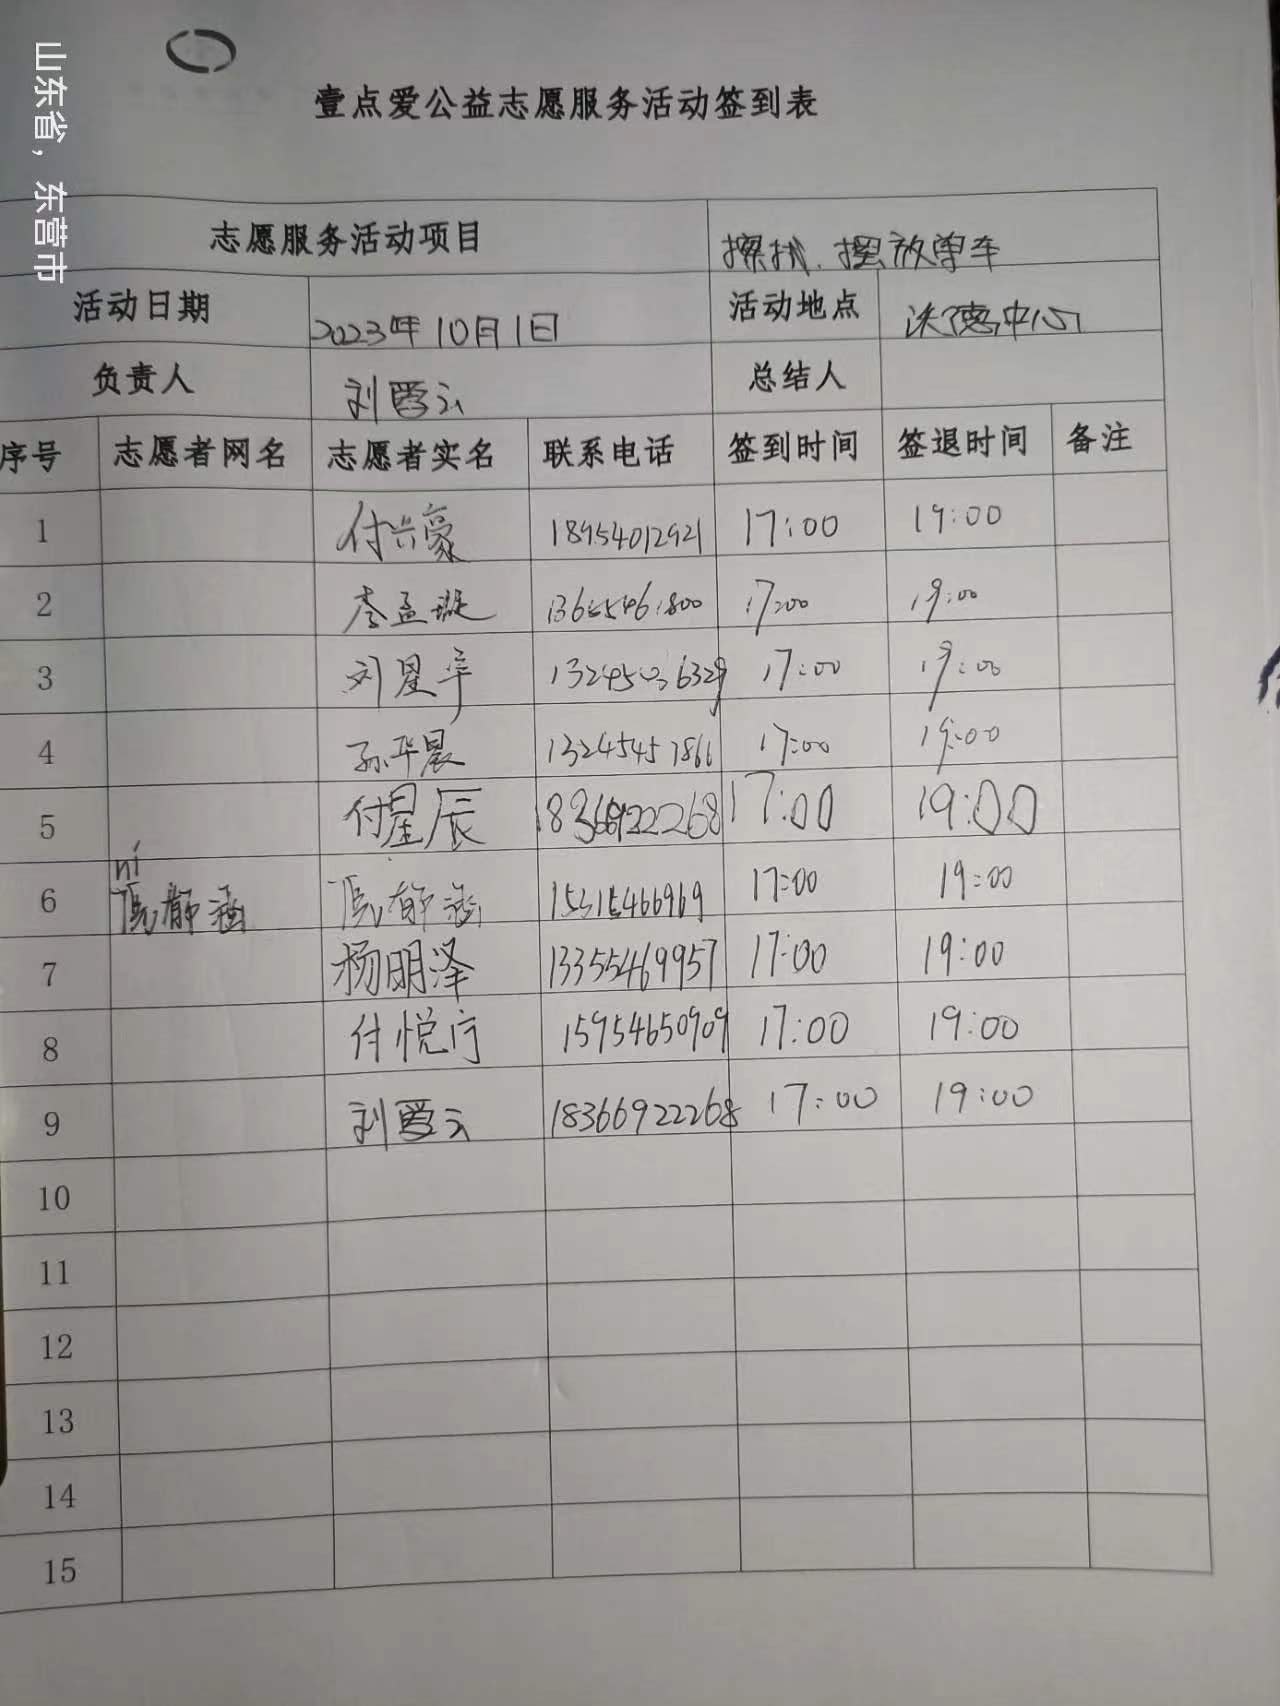 山东省，东营市
壹点爱公益志愿服务活动签到表
志愿服务活动项目 摆放单车
活动日期 2023年10月1日 活动地点 中心
负责人 刘爱云 总结人
序号 志愿者网名 志愿者实名 联系电话 签到时间 签退时间 备注
1 付兴豪 18954012921 17:00 19:00
2 李孟璇 17:00 19:00
3 刘星宇 17:00 19:00
4 孙华晨 13245457866 17:00 19:00
5 付星辰 18366922268 17:00 19:00
ní
6 倪静涵 倪静涵 15315466969 17:00 19:00
7 杨明泽 13355469957 17:00 19:00
8 付悦宁 15954650909 17:00 19:00
9 刘爱云 18366922268 17:00 19:00
10
11
12
13
14
15